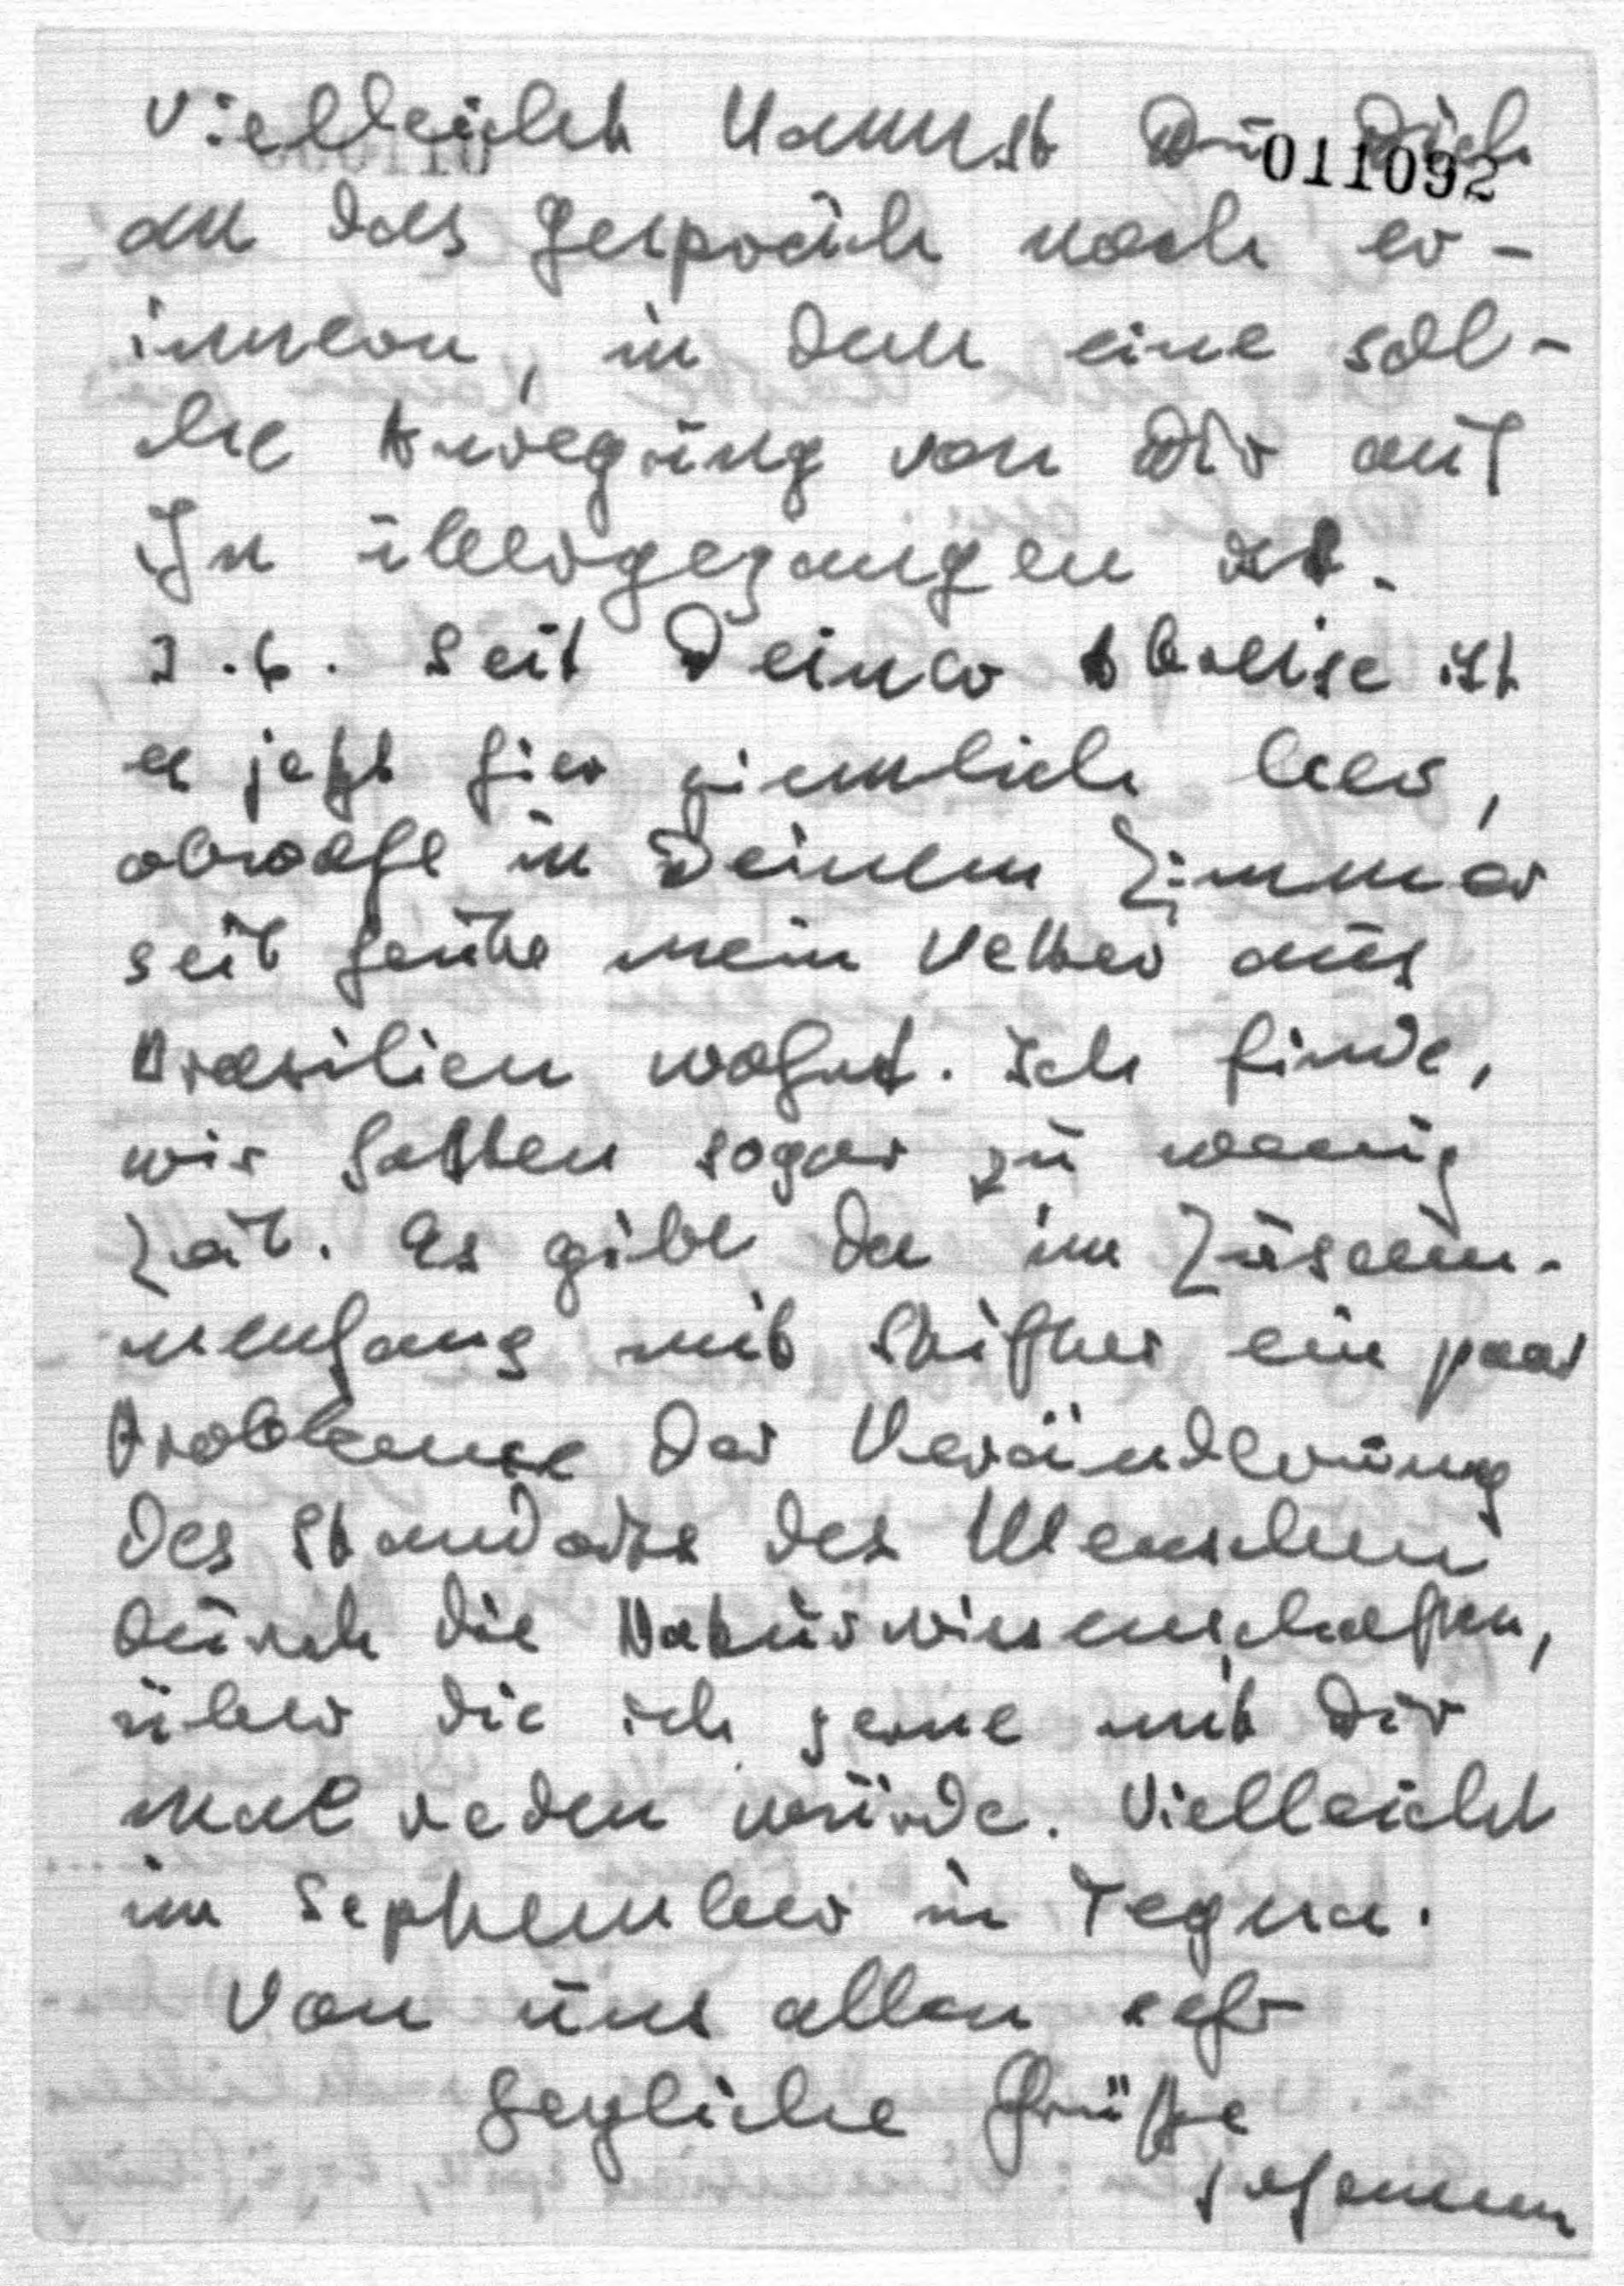 Vielleicht kannst Du Dich
011092
an das Gespräch noch er-
innern, in dem eine sol-
che Anregung von Dir auf
Jn übergegangen ist.
seit Deiner Abreise ist
es jetzt hier ziemlich leer,
obwohl in Deinem Zimmer
seit heute mein Vetter aus
Brasilien wohnt. Ich finde,
wir hatten sogar zu wenig
Zeit. Es gibt da im Zusam-
menhang mit Stifter ein paar
Probleme der Veränderung
des Standorts des Menschen
durch die Naturwissenschaften,
über die ich gerne mit Dir
mal reden würde. Vielleicht
im September in Tegna.
Von uns allen sehr
herzliche Grüße
Johannes